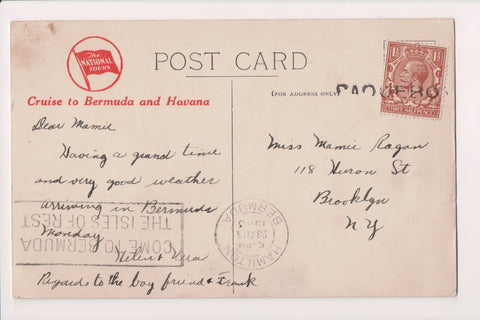 The
NATIONAL
TOURS
POST CARD
Cruise to Bermuda and Havana
(FOR ADDRESS ONLY)
PAQUEBO
THREE HALFPENCE
Dear Mamie
Having a grand time
and very good weather
arriving in Bermuda
Monday
Helen & Vera
Regards to the boy friend & Frank
Miss Mamie Ragan
118 Huron St
Brooklyn
N Y
COME TO BERMUDA
THE ISLES OF REST
HAMILTON
BERMUDA